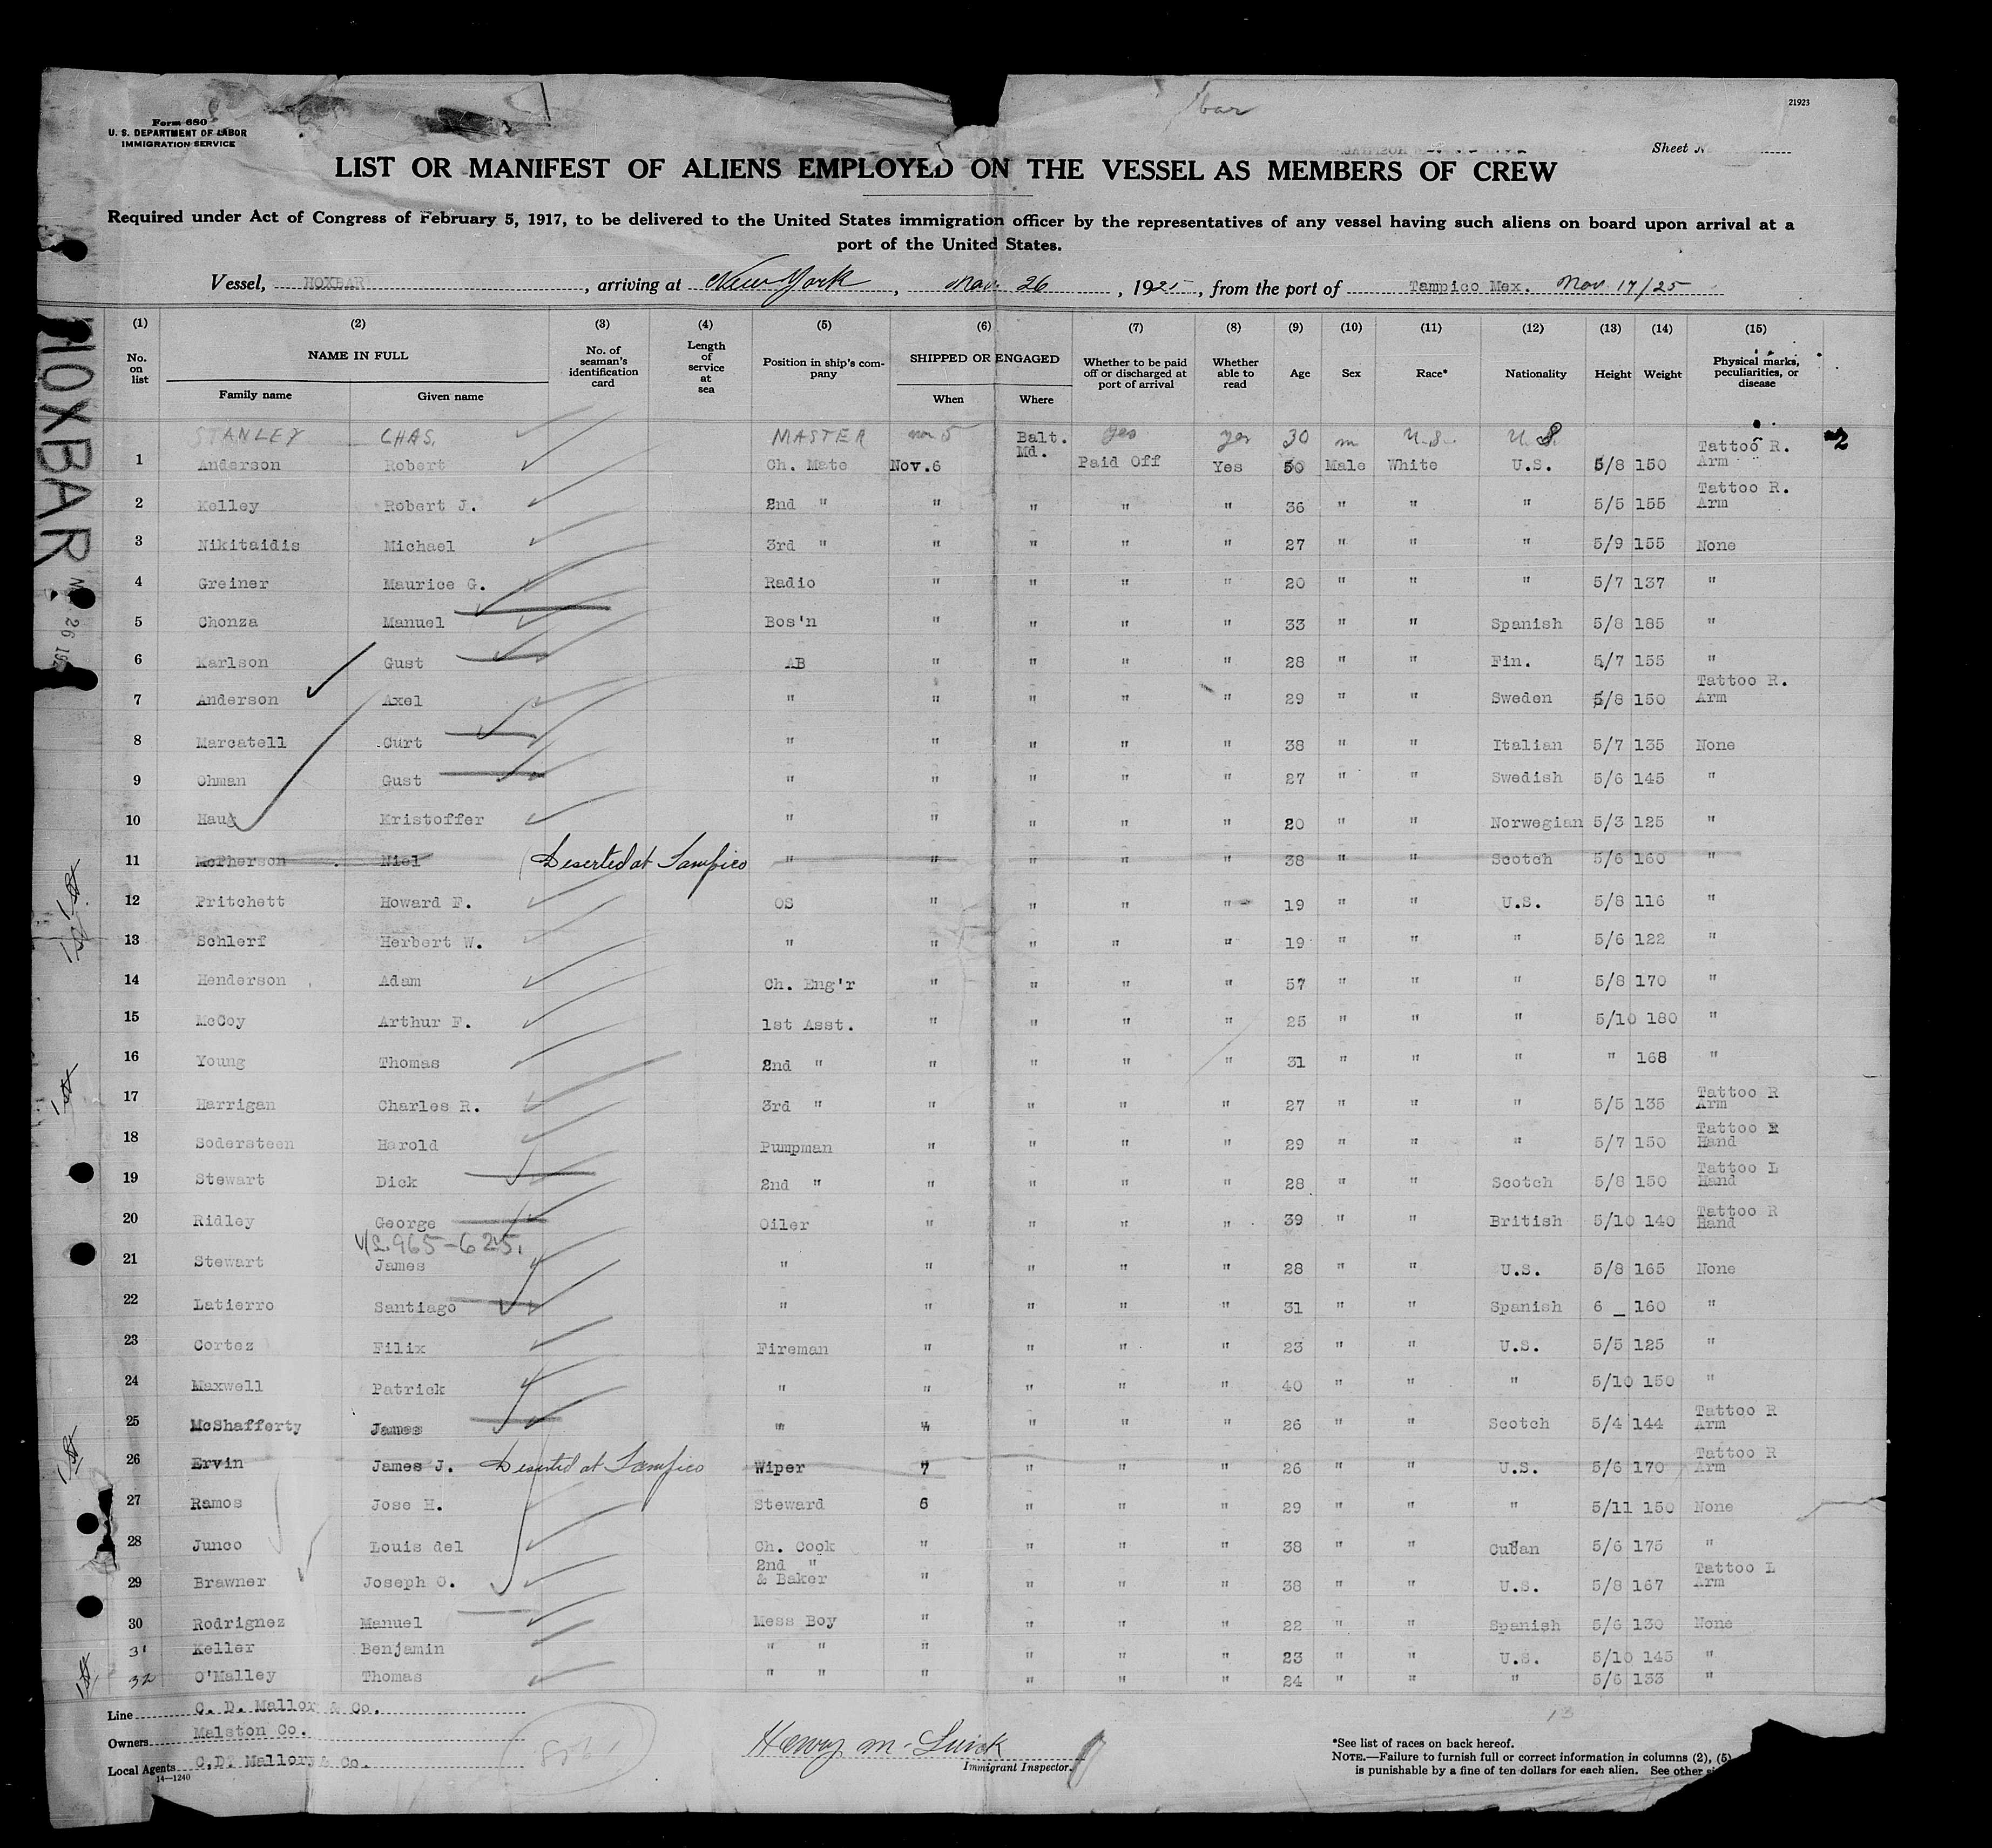 bar
21923
Form 680
U. S. DEPARTMENT OF LABOR
IMMIGRATION SERVICE
Sheet
LIST OR MANIFEST OF ALIENS EMPLOYED ON THE VESSEL AS MEMBERS OF CREW
Required under Act of Congress of February 5, 1917, to be delivered to the United States immigration officer by the representatives of any vessel having such aliens on board upon arrival at a
port of the United States.
Vessel, HOXBAR, arriving at New York, Nov. 26, 1925, from the port of Tampico Mex. Nov 17/25
HOXBAR
(1) (2) (3) (4) (5) (6) (7) (8) (9) (10) (11) (12) (13) (14) (15)
No. on list NAME IN FULL Family name Given name No. of seaman's identification card Length of service at sea Position in ship's company SHIPPED OR ENGAGED When Where Whether to be paid off or discharged at port of arrival Whether able to read Age Sex Race* Nationality Height Weight Physical marks, peculiarities, or disease
STANLEY CHAS. MASTER nov 5 Balt. Md. yes yes 30 m U.S. U.S.
1 Anderson Robert Ch. Mate Nov.6 Paid Off Yes 50 Male White U.S. 5/8 150 Tattoo R. Arm
2 Kelley Robert J. 2nd " " " " " 36 " " " 5/5 155 Tattoo R. Arm
3 Nikitaidis Michael 3rd " " " " " 27 " " " 5/9 155 None
4 Greiner Maurice G. Radio " " " " 20 " " " 5/7 137 "
5 Chonza Manuel Bos'n " " " " 33 " " Spanish 5/8 185 "
6 Karlson Gust AB " " " " 28 " " Fin. 5/7 155 "
7 Anderson Axel " " " " " 29 " " Sweden 5/8 150 Tattoo R. Arm
8 Marcatell Curt " " " " " 38 " " Italian 5/7 135 None
9 Ohman Gust " " " " " 27 " " Swedish 5/6 145 "
10 Haug Kristoffer " " " " " 20 " " Norwegian 5/3 125 "
11 McPherson Niel Deserted at Tampico " " " " " 38 " " Scotch 5/6 160 "
12 Pritchett Howard F. OS " " " " 19 " " U.S. 5/8 116 "
13 Schlerf Herbert W. " " " " " 19 " " " 5/6 122 "
14 Henderson Adam Ch. Eng'r " " " " 57 " " " 5/8 170 "
15 McCoy Arthur F. 1st Asst. " " " " 25 " " " 5/10 180 "
16 Young Thomas 2nd " " " " " 31 " " " " 168 "
17 Harrigan Charles R. 3rd " " " " " 27 " " " 5/5 135 Tattoo R Arm
18 Sodersteen Harold Pumpman " " " " 29 " " " 5/7 150 Tattoo R Hand
19 Stewart Dick 2nd " " " " " 28 " " Scotch 5/8 150 Tattoo L Hand
20 Ridley George Oiler " " " " 39 " " British 5/10 140 Tattoo R Hand
965-625
21 Stewart James " " " " " 28 " " U.S. 5/8 165 None
22 Latierro Santiago " " " " " 31 " " Spanish 6 _ 160 "
23 Cortez Filix Fireman " " " " 23 " " U.S. 5/5 125 "
24 Maxwell Patrick " " " " " 40 " " " 5/10 150 "
25 McShafferty James " " " " " 26 " " Scotch 5/4 144 Tattoo R Arm
26 Ervin James J. Deserted at Tampico Wiper 7 " " " 26 " " U.S. 5/6 170 Tattoo R Arm
27 Ramos Jose H. Steward 6 " " " 29 " " " 5/11 150 None
28 Junco Louis del Ch. Cook " " " " 38 " " Cuban 5/6 175 "
29 Brawner Joseph O. 2nd " & Baker " " " " 38 " " U.S. 5/8 167 Tattoo L Arm
30 Rodrignez Manuel Mess Boy " " " " 22 " " Spanish 5/6 130 None
31 Keller Benjamin " " " " " " 23 " " U.S. 5/10 145 "
32 O'Malley Thomas " " " " " " 24 " " " 5/6 133 "
Line C. D. Mallory & Co.
Owners Malston Co.
Local Agents C.D. Mallory & Co.
14—1240
13
Immigrant Inspector.
*See list of races on back hereof.
NOTE.—Failure to furnish full or correct information in columns (2), (5)
is punishable by a fine of ten dollars for each alien. See other